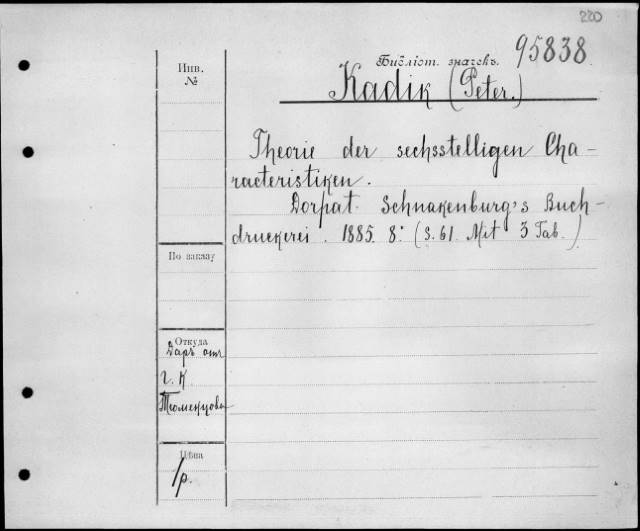 220
95838
Библіот. значекъ.
Инв.
№
Kadik (Peter.)
Theorie der sechsstelligen Cha-
racteristiken.
Dorpat. Schnakenburg's Buch-
druckerei. 1885. 8: (S. 61. Mit 3 Tab.)
По заказу
Откуда
Даръ отъ
г. К
Тюменцова
Цѣна
1р.